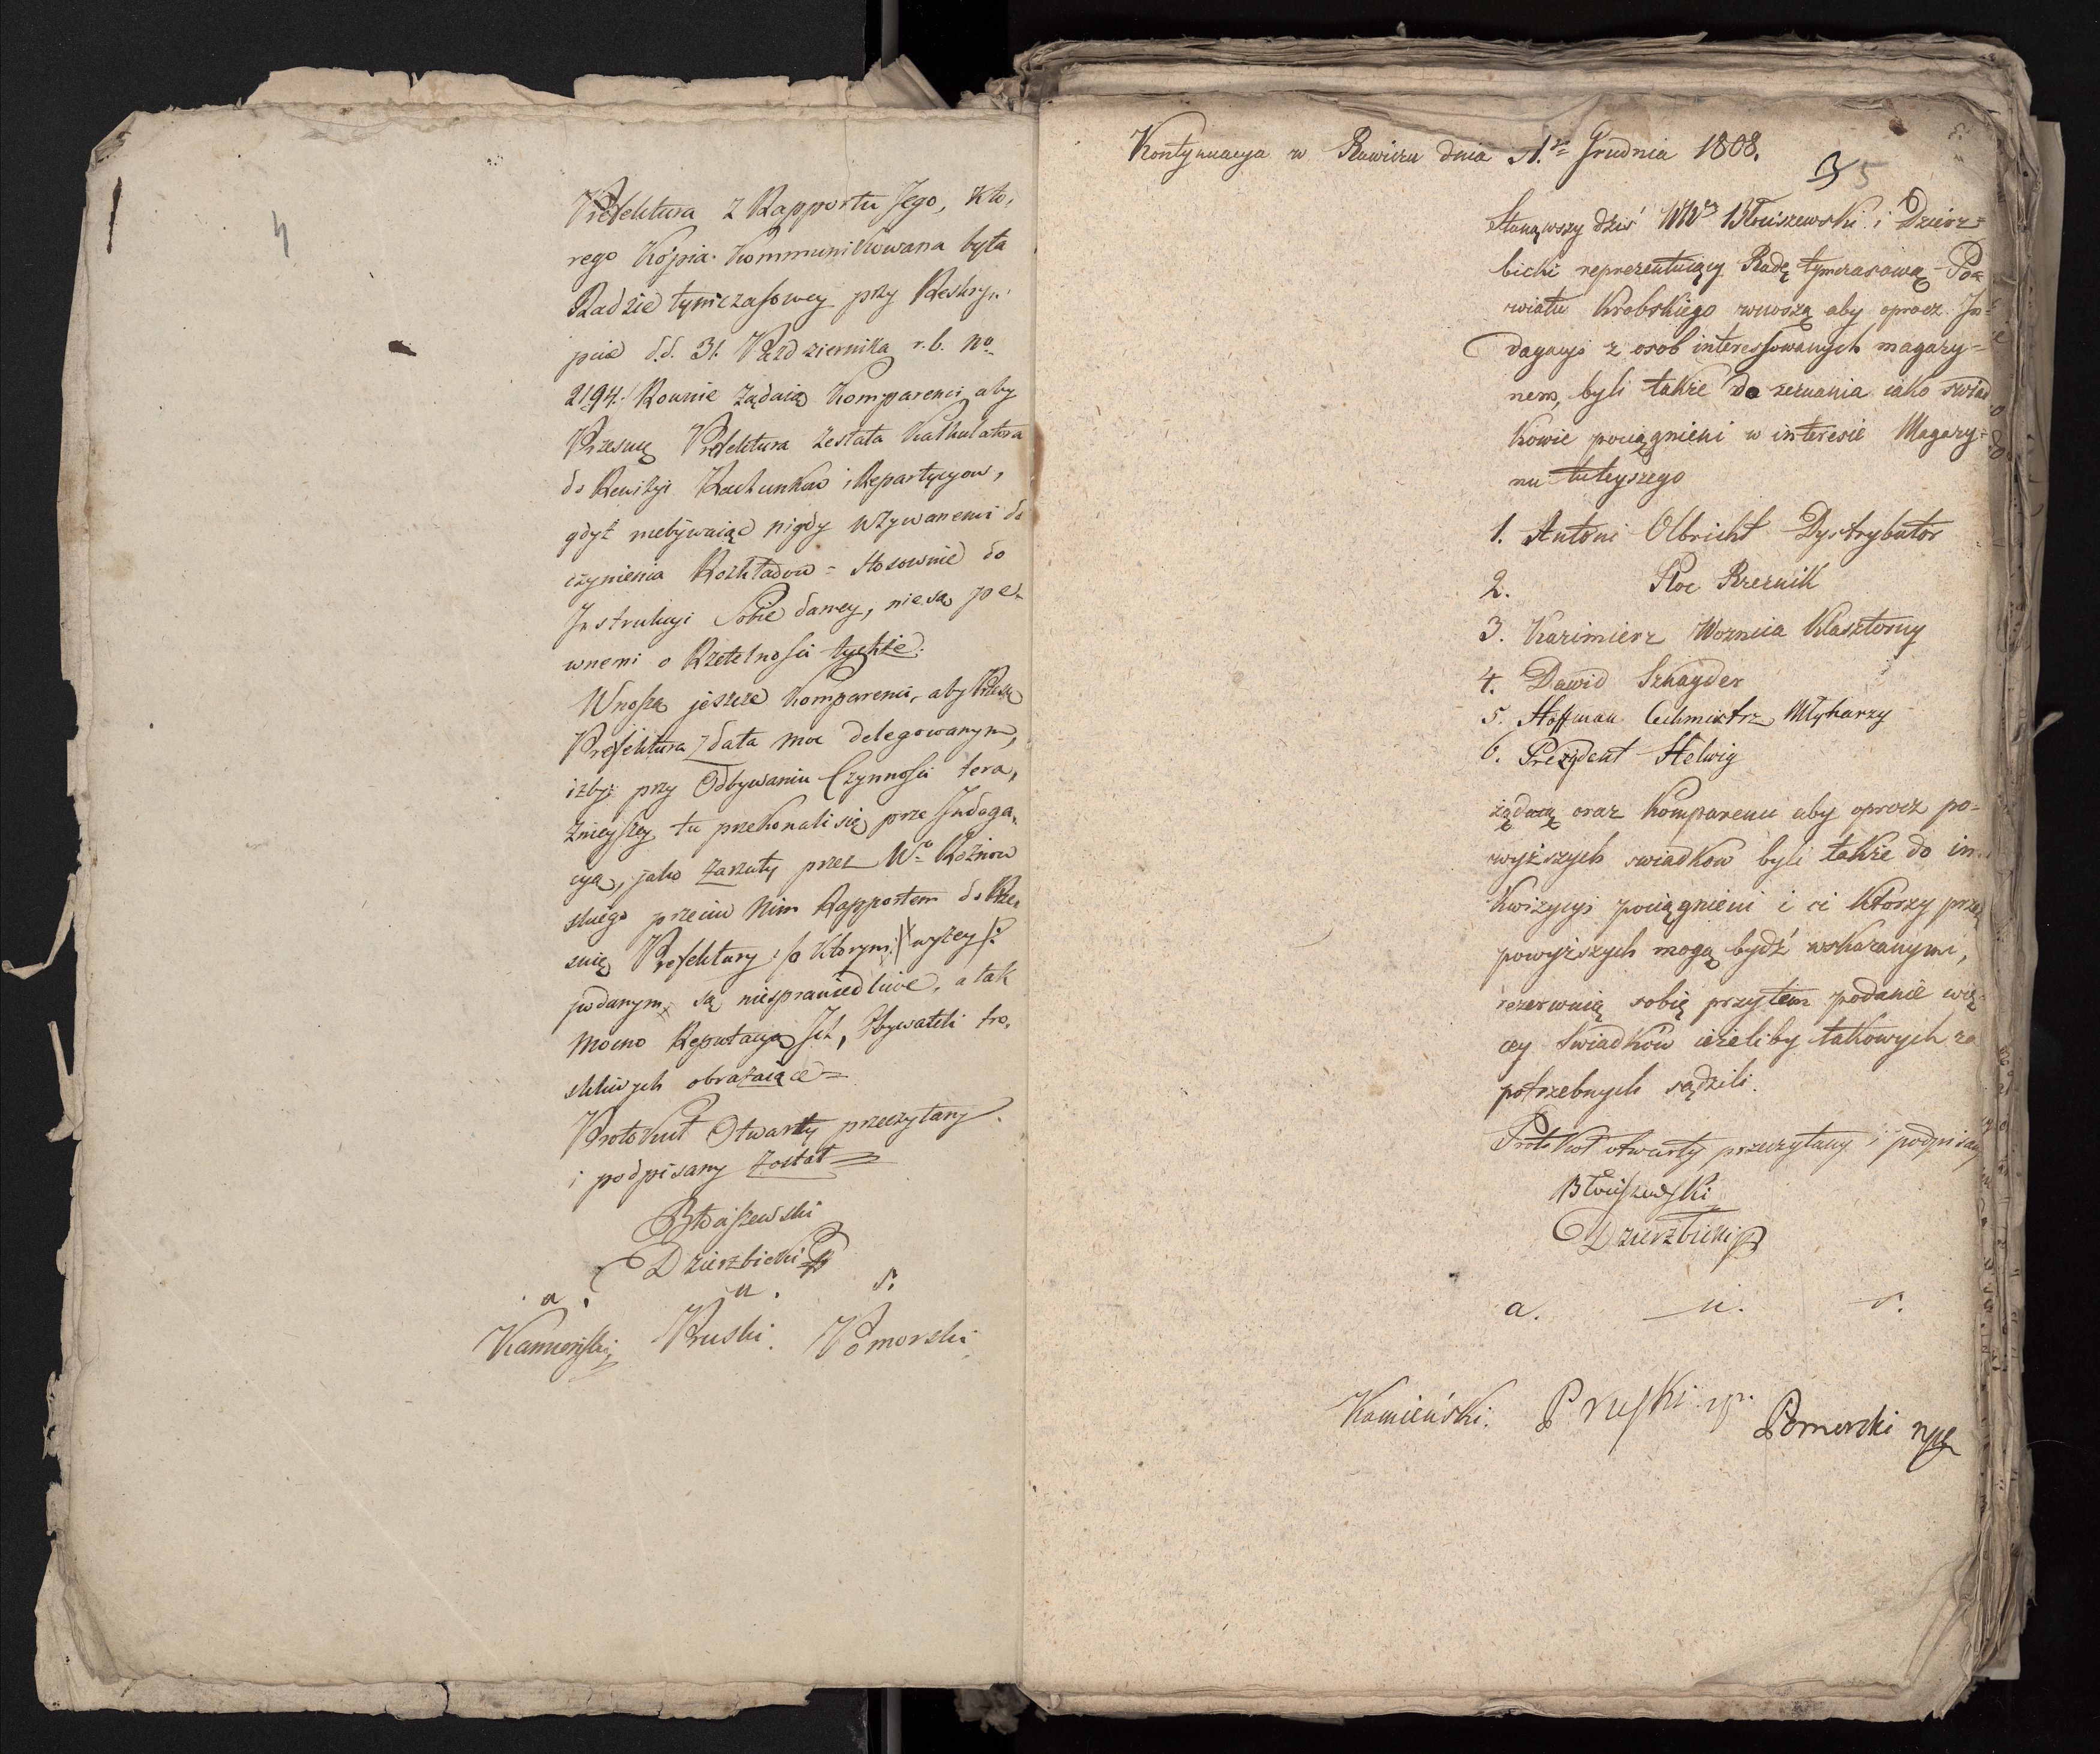 4
Prefektura z Rapportu Jego, któ,
rego Kópia Kommunikowana była
Radzie tymczasowey przy Reskryp,
pcie d.d. 31. Października r.b. No
2194./ Rownie żądaią Komparenci aby
Przesw. Prefektura zesłała Kalkulatora
do Rewizyi Rachunkow i Repartycyow,
gdyż niebywaiąc nigdy wzywanemi do
czynienia Rozkładow = stosownie do
Instrukcyi Sobie daney, nie są pe=
wnemi o Rzetelnosci tychże.
Wnoszą jeszcze Komparenci, aby Przesw.
Prefektura zdała moc delegowanym,
iżby przy Odbywaniu Czynności tera,
znieyszey tu przekonali się prze Indaga,
cyą, jako zarzuty przez Wo Koźnow
skiego przeciw Nim Rapportem do Prze,
swię Prefektury /:o którym wyżey:/
podanym, są niesprawiedliwe, a tak
mocno Reputacyą Ich, Obywateli tro,
skliwych obrażaiące =
Protokuł Otwarty przeczytany
i podpisany został =
Błociszewski
Dzierzbicki
a. u. s.
Kamieński, Pruski. Pomorski.
Kontynuacya w Rawiczu dnia 1. Grudnia 1808.
5
Stanąwszy dziś WW Błociszewski i Dzierz=
bicki reprezentuiący Radę tymczasową Po=
wiatu Krobskiego wnoszą aby oprocz In=
dagacyi z osob interessowanych magazy=
nem, byli także do zeznania iako świad
kowie pociągnieni w interesie Magazy=
nu tuteyszego
1. Antoni Olbricht Dystrybutor
2. Ploc Rzeznik
3. Kazimierz Woznica Klasztorny
4. Dawid Sznayder
5. Hoffman Cechmistrz Młynarzy
6. Prezydent Helwig
żądaią oraz Komparenci aby oprocz po=
wyższych swiadkow byli także do in=
kwizycyi pociągnieni i ci ktorzy przez
powyższych mogą bydź wskazanymi,
rezerwuią sobie przytem podanie wię=
cey Swiadków ieżeliby takowych za
potrzebnych sądzili.
Protokół otwarty przeczytany i podpisany
Błociszewski
Dzierzbicki
a. u. s.
Kamieński. Pruski mp. Pomorski mp